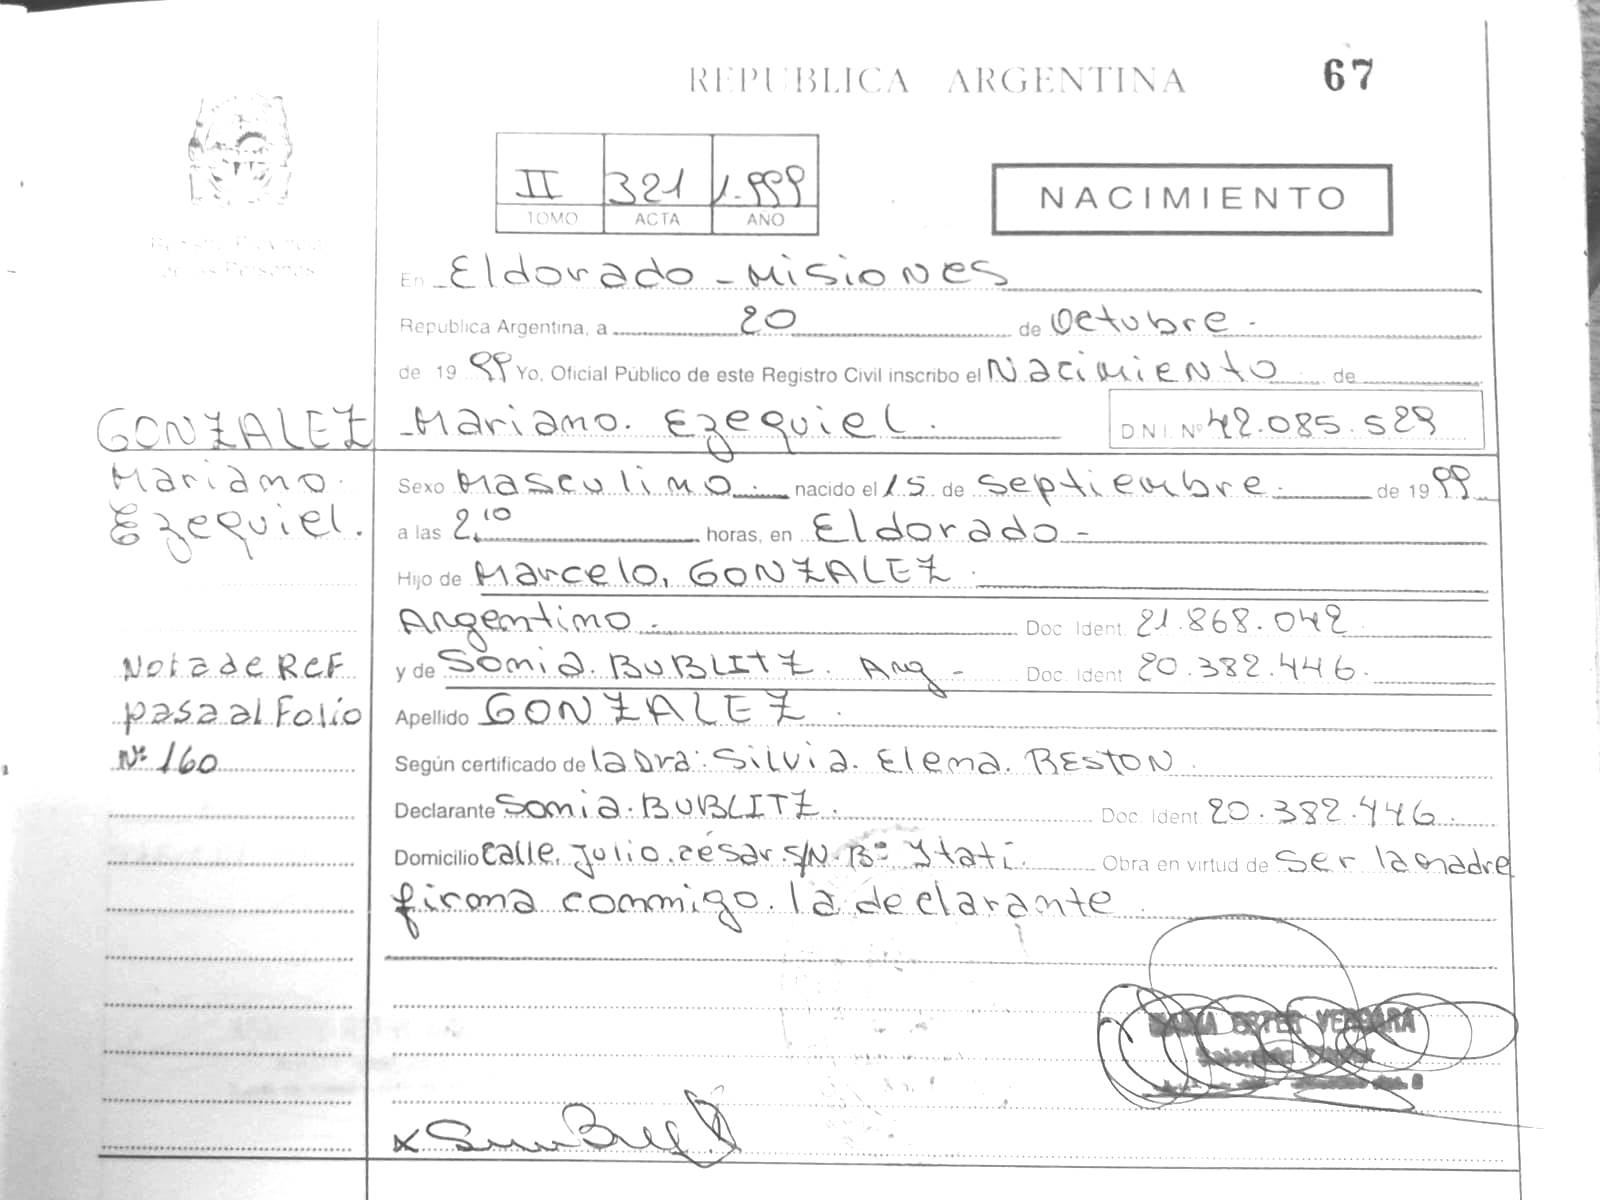 REPUBLICA ARGENTINA
67
II 321 1.999
TOMO ACTA AÑO
NACIMIENTO
Registro Provincial
de las Personas
En Eldorado - Misiones
Republica Argentina, a 20 de Octubre.
de 1999 Yo, Oficial Público de este Registro Civil inscribo el Nacimiento de
GONZALEZ
Mariano. Ezequiel. D N I. Nº 42.085.529
Mariano.
Ezequiel.
Sexo Masculino. nacido el 15 de Septiembre. de 1999
a las 2.10 horas, en Eldorado -
Hijo de Marcelo, GONZALEZ.
Argentino. Doc Ident. 21.868.042
Nota de Ref
y de Sonia. BUBLITZ. Arg - Doc. Ident 20.382.446.
pasa al Folio
Apellido GONZALEZ.
Nº 160
Según certificado de la Dra: Silvia. Elena. RESTON.
Declarante Sonia. BUBLITZ. Doc. Ident 20.382.446.
Domicilio Calle. Julio. César. S/N. Bº Ytati. Obra en virtud de Ser la madre
firma conmigo. la declarante.
MARIA ESTER VERGARA